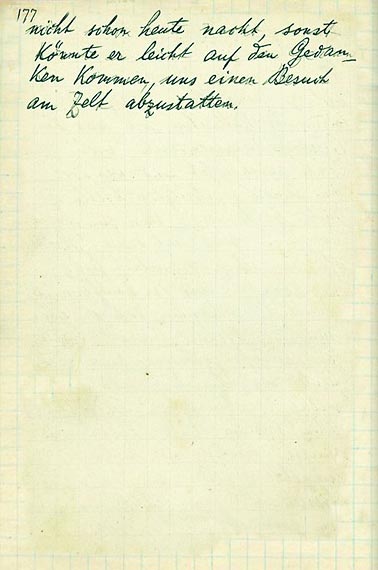 177
nicht schon heute nacht, sonst
könnte er leicht auf den Gedan-
ken kommen, uns einen Besuch
am Zelt abzustatten.